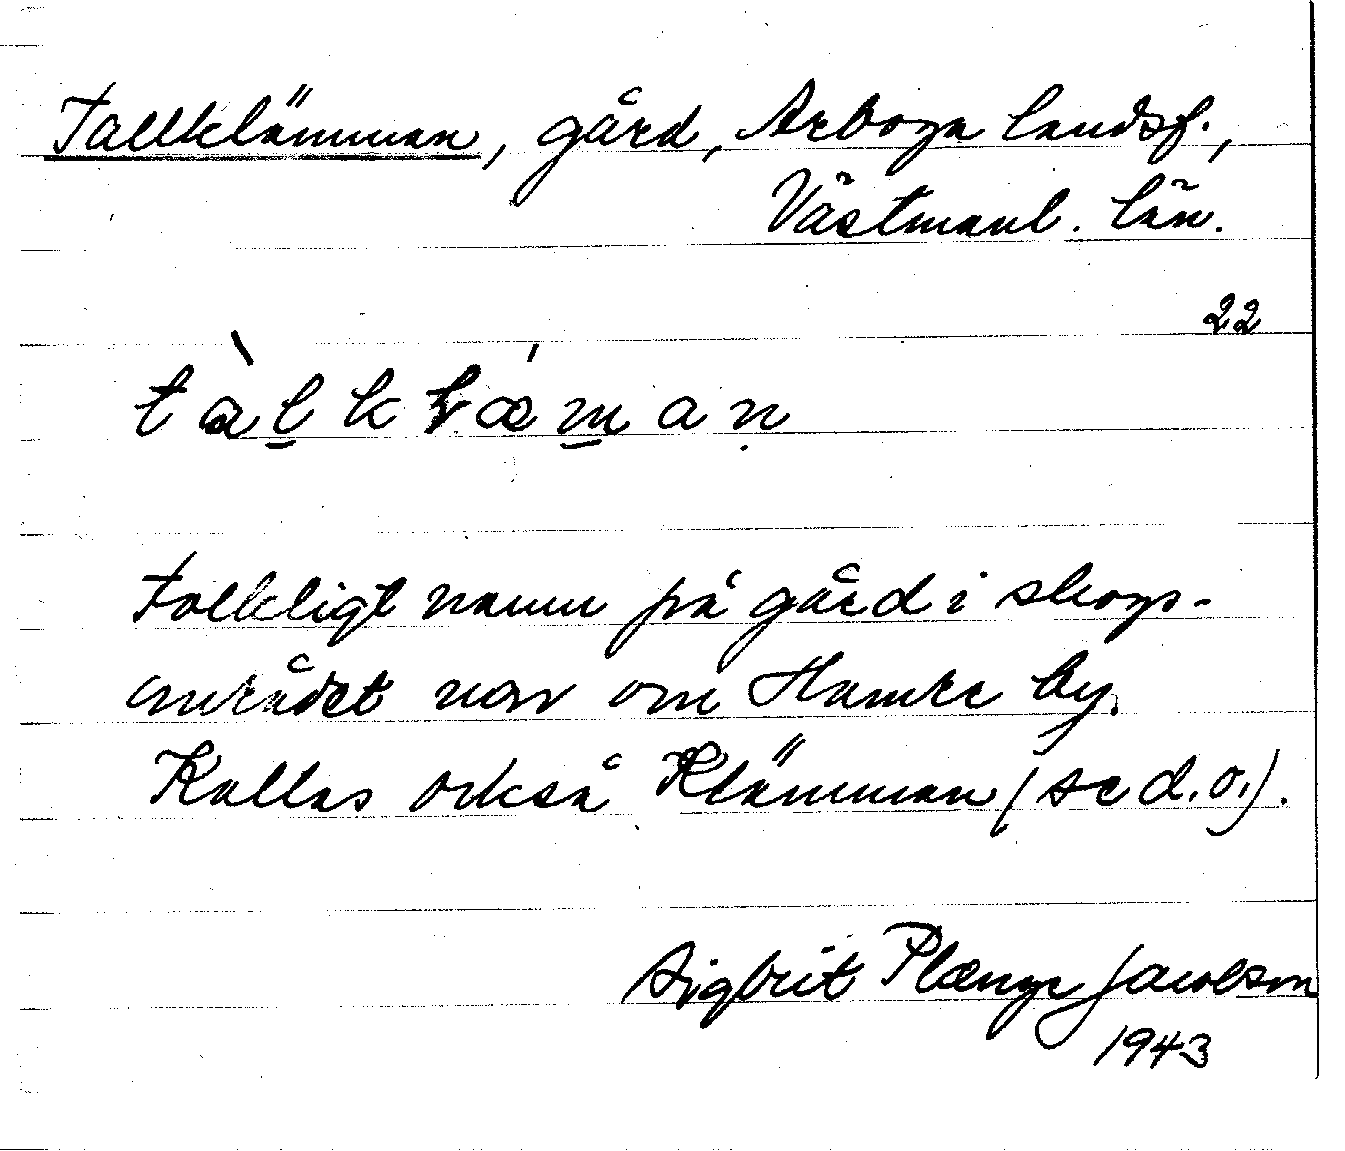 Tallklämman, gård, Arboga landsf.,
Västmanl. län.
22
tàlkłǽman
Folkligt namn på gård i skogs-
området nov om Hamre by.
Kallas också Klämman (se d.o.).
Sigbrit Plænge Jacobson
1943